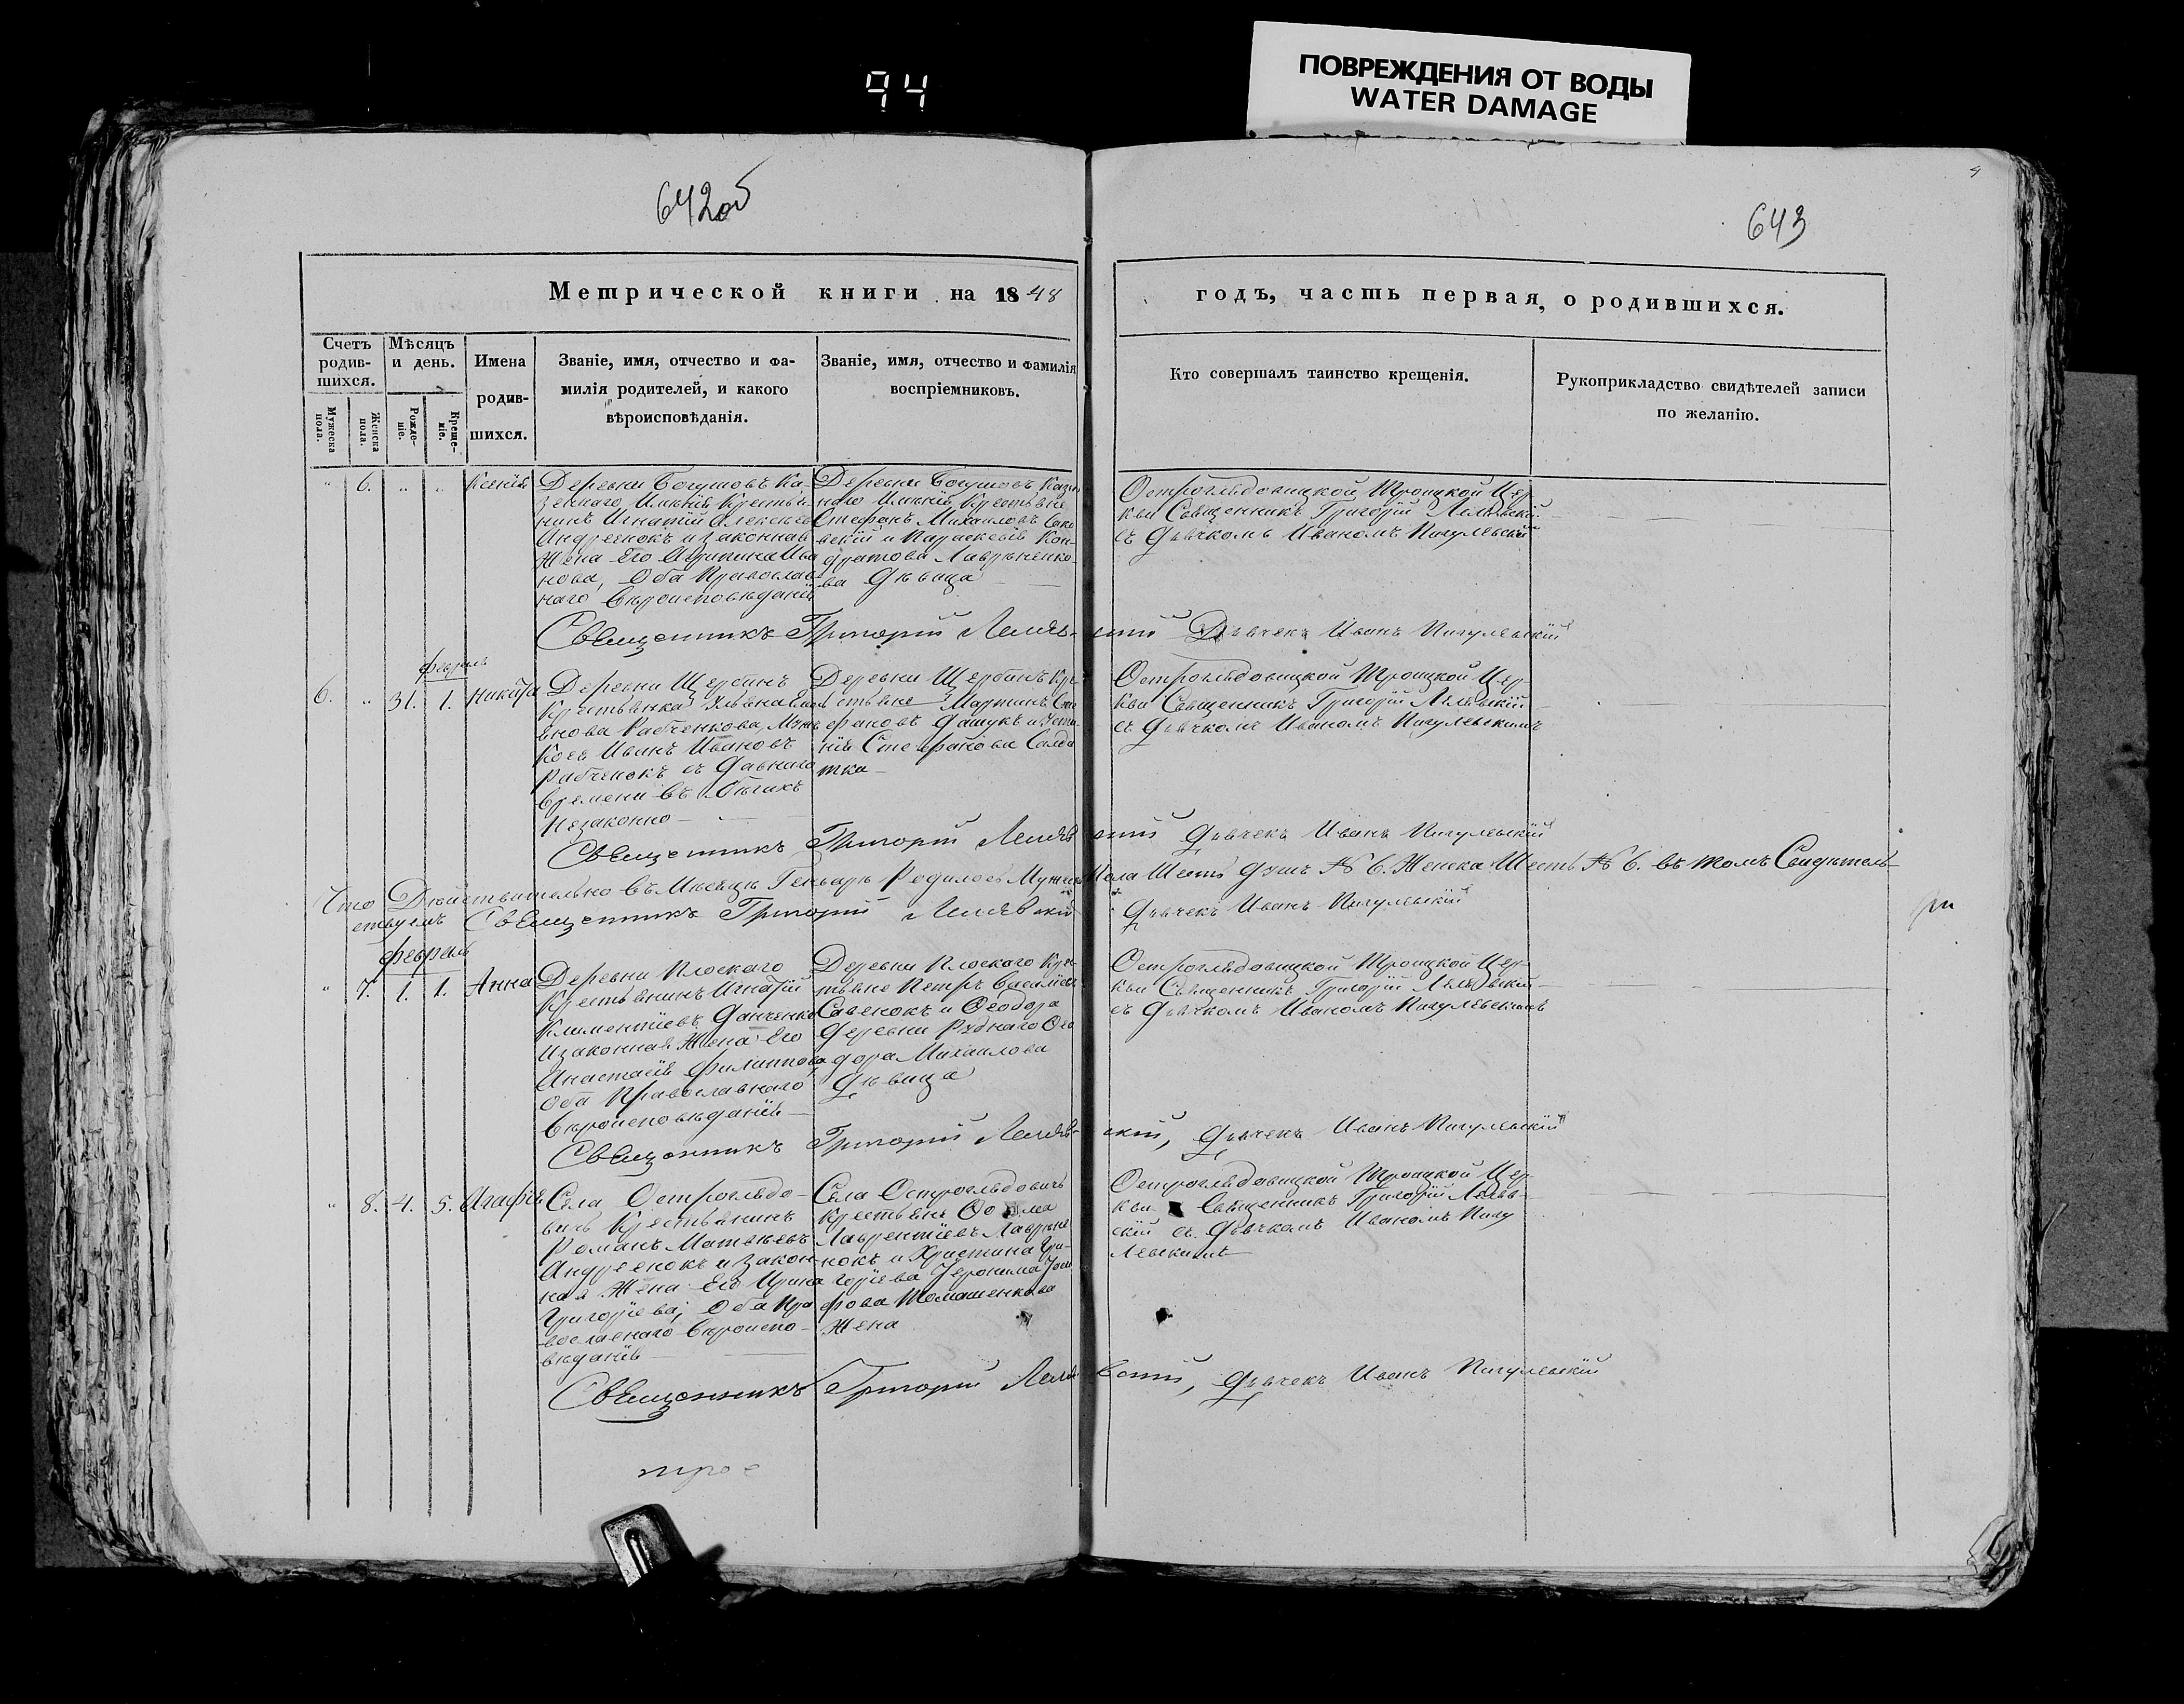 94
ПОВРЕЖДЕНИЯ ОТ ВОДЫ
WATER DAMAGE
642об
643
4
Метрической книги на 1848
годъ, часть первая, о родившихся.
Счетъ родив-шихся.
Мѣсяцъ и день.
Имена родив-шихся.
Званіе, имя, отчество и фа-
милія родителей, и какого
вѣроисповѣданія.
Званіе, имя, отчество и фамилія
воспріемниковъ.
Кто совершалъ таинство крещенія.
Рукоприкладство свидѣтелей записи
по желанію.
Мужеска пола.
Женска пола.
Рожде-ніе.
Креще-ніе.
" 6. " " Ксенія
Деревни Богушовъ Ка-
зеннаго Имѣнія Крестья-
нинъ Игнатій Алексѣевъ
Андреенокъ и законная
Жена Его Агрипина Ива
нова, Оба Православ
наго Вѣроисповѣданія
Деревни Богушовъ Казен
наго Имѣнія Крестьяне
Стефанъ Михаиловъ
и Параскевія Кон-
дратова Лавриненко-
ва Дѣвица
Острогльдовицкой Троицкой Цер-
кви Священникъ Григорій
съ Дьячкомъ Иваномъ Пигулевский
Священникъ Григорий Дьячекъ Иванъ Пигулевский
февраль
6. " 31. 1. Никита
Деревни Щербинъ
Крестьянка
Рабченкова, Мужъ
Коея Иванъ Ивановъ
Рабченокъ съ Давнаго
Времени въ Бѣгахъ
Незаконно
Деревни Щербинъ Кре-
стьяне Мартинъ Сте
фановъ Дашукъ и
Стефанова Солда
тка
Острогльдовицкой Троицкой Цер-
кви Священникъ Григорій
съ Дьячкомъ Иваномъ Пигулевскимъ
Священникъ Григорий Дьячекъ Иванъ Пигулевский
Что Дѣйствительно въ Мѣсяцѣ Генварѣ Родилось Мужеска Пола Шесть Душъ № 6. Женска Шесть № 6. въ томъ Свидѣтель-
ствуемъ Священникъ Григорий Дьячекъ Иванъ Пигулевский
февраль
" 7. 1. 1. Анна
Деревни Плоскаго
Крестьянинъ Игнатій
Климентіевъ Данченко
И законная Жена Его
Анастасія Филиппова
Оба Православнаго
Вѣроисповѣданія
Деревни Плоскаго Крес
тьяне Петръ Василіевъ
Савенокъ и Ѳеодора
Деревни Руднаго Ѳео
дора Михаилова
Дѣвица
Острогльдовицкой Троицкой Цер-
кви Священникъ Григорій
съ Дьячкомъ Иваномъ Пигулевскимъ
Священникъ Григорий Дьячекъ Иванъ Пигулевский
" 8. 4. 5. Агафія
Села Острогльдо-
вичъ Крестьянинъ
Романъ Матвѣевъ
Андреенокъ и Закон-
ная Жена Его Ирина
Григоріева; Оба Пра
вославнаго Вѣроиспо-
вѣданія
Села Острогльдовичъ
Крестьяне
Лаврентіевъ Лаврине
нокъ и Христина Гри-
горіева Іеронима Іоси
фова Томашенкова
Жена
Острогльдовицкой Троицкой Цер
кви Священникъ Григорій
съ Дьячкомъ Иваномъ Пигу
левскимъ
Священникъ Григорий Дьячекъ Иванъ Пигулевский
трое